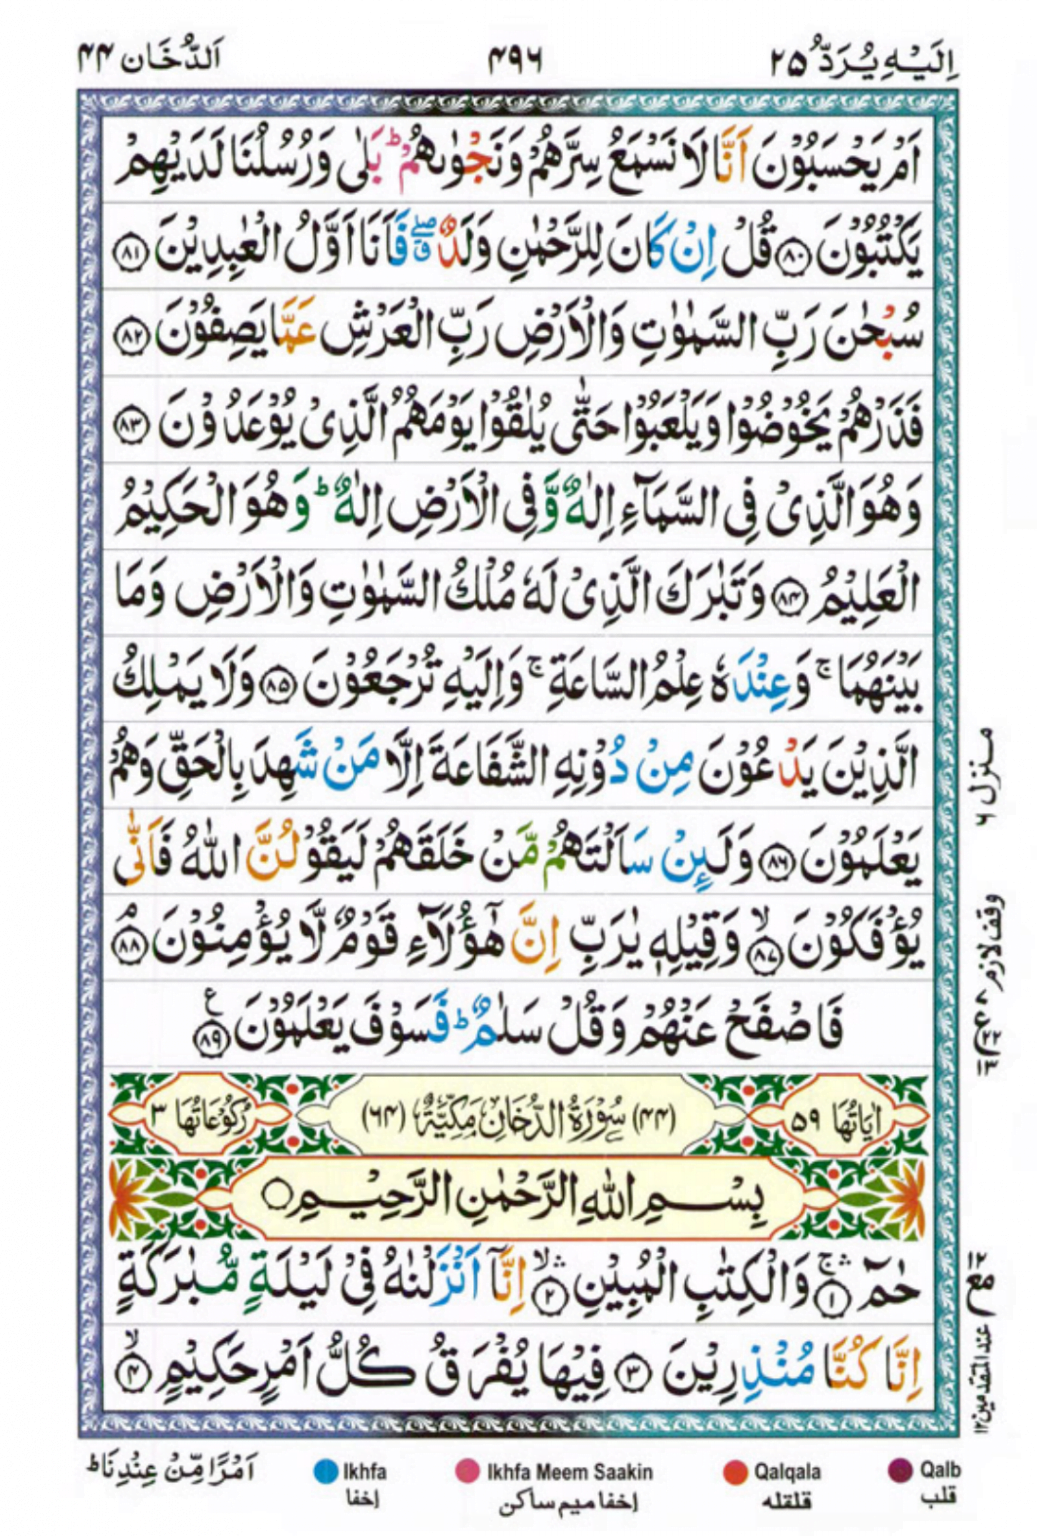 اِلَيْهِ يُرَدُّ ٢٥
٤٩٦
اَلدُّخَان ٤٤
اَمْ يَحْسَبُوْنَ اَنَّا لَا نَسْمَعُ سِرَّهُمْ وَنَجْوٰىهُمْ ؕ بَلٰى وَرُسُلُنَا لَدَيْهِمْ
يَكْتُبُوْنَ ﴿٨٠﴾ قُلْ اِنْ كَانَ لِلرَّحْمٰنِ وَلَدٌ ۖ ۗ فَاَنَا اَوَّلُ الْعٰبِدِيْنَ ﴿٨١﴾
سُبْحٰنَ رَبِّ السَّمٰوٰتِ وَالْاَرْضِ رَبِّ الْعَرْشِ عَمَّا يَصِفُوْنَ ﴿٨٢﴾
فَذَرْهُمْ يَخُوْضُوْا وَيَلْعَبُوْا حَتّٰى يُلٰقُوْا يَوْمَهُمُ الَّذِىْ يُوْعَدُوْنَ ﴿٨٣﴾
وَهُوَ الَّذِىْ فِى السَّمَآءِ اِلٰهٌ وَّفِى الْاَرْضِ اِلٰهٌ ؕ وَهُوَ الْحَكِيْمُ
الْعَلِيْمُ ﴿٨٤﴾ وَتَبٰرَكَ الَّذِىْ لَهٗ مُلْكُ السَّمٰوٰتِ وَالْاَرْضِ وَمَا
بَيْنَهُمَا ۚ وَعِنْدَهٗ عِلْمُ السَّاعَةِ ۚ وَاِلَيْهِ تُرْجَعُوْنَ ﴿٨٥﴾ وَلَا يَمْلِكُ
الَّذِيْنَ يَدْعُوْنَ مِنْ دُوْنِهِ الشَّفَاعَةَ اِلَّا مَنْ شَهِدَ بِالْحَقِّ وَهُمْ
يَعْلَمُوْنَ ﴿٨٦﴾ وَلَئِنْ سَاَلْتَهُمْ مَّنْ خَلَقَهُمْ لَيَقُوْلُنَّ اللّٰهُ فَاَنّٰى
يُؤْفَكُوْنَ ۙ﴿٨٧﴾ وَقِيْلِهٖ يٰرَبِّ اِنَّ هٰٓؤُلَآءِ قَوْمٌ لَّا يُؤْمِنُوْنَ ۘ﴿٨٨﴾
فَاصْفَحْ عَنْهُمْ وَقُلْ سَلٰمٌ ؕ فَسَوْفَ يَعْلَمُوْنَ ﴿٨٩﴾ ع
اٰيَاتُهَا ٥٩
(٤٤) سُوْرَةُ الدُّخَانِ مَكِّيَّةٌ (٦٤)
رُكُوْعَاتُهَا ٣
بِسْمِ اللّٰهِ الرَّحْمٰنِ الرَّحِيْمِ
حٰمٓ ۚۛ﴿١﴾ وَالْكِتٰبِ الْمُبِيْنِ ۙۛ﴿٢﴾ اِنَّاۤ اَنْزَلْنٰهُ فِىْ لَيْلَةٍ مُّبٰرَكَةٍ
اِنَّا كُنَّا مُنْذِرِيْنَ ﴿٣﴾ فِيْهَا يُفْرَقُ كُلُّ اَمْرٍ حَكِيْمٍ ۙ﴿٤﴾
منزل ٦
وقف لازم
عند المتقدمين ١٢
اَمْرًا مِّنْ عِنْدِنَا ؕ
Ikhfa
اخفا
Ikhfa Meem Saakin
اخفا میم ساکن
Qalqala
قلقله
Qalb
قلب